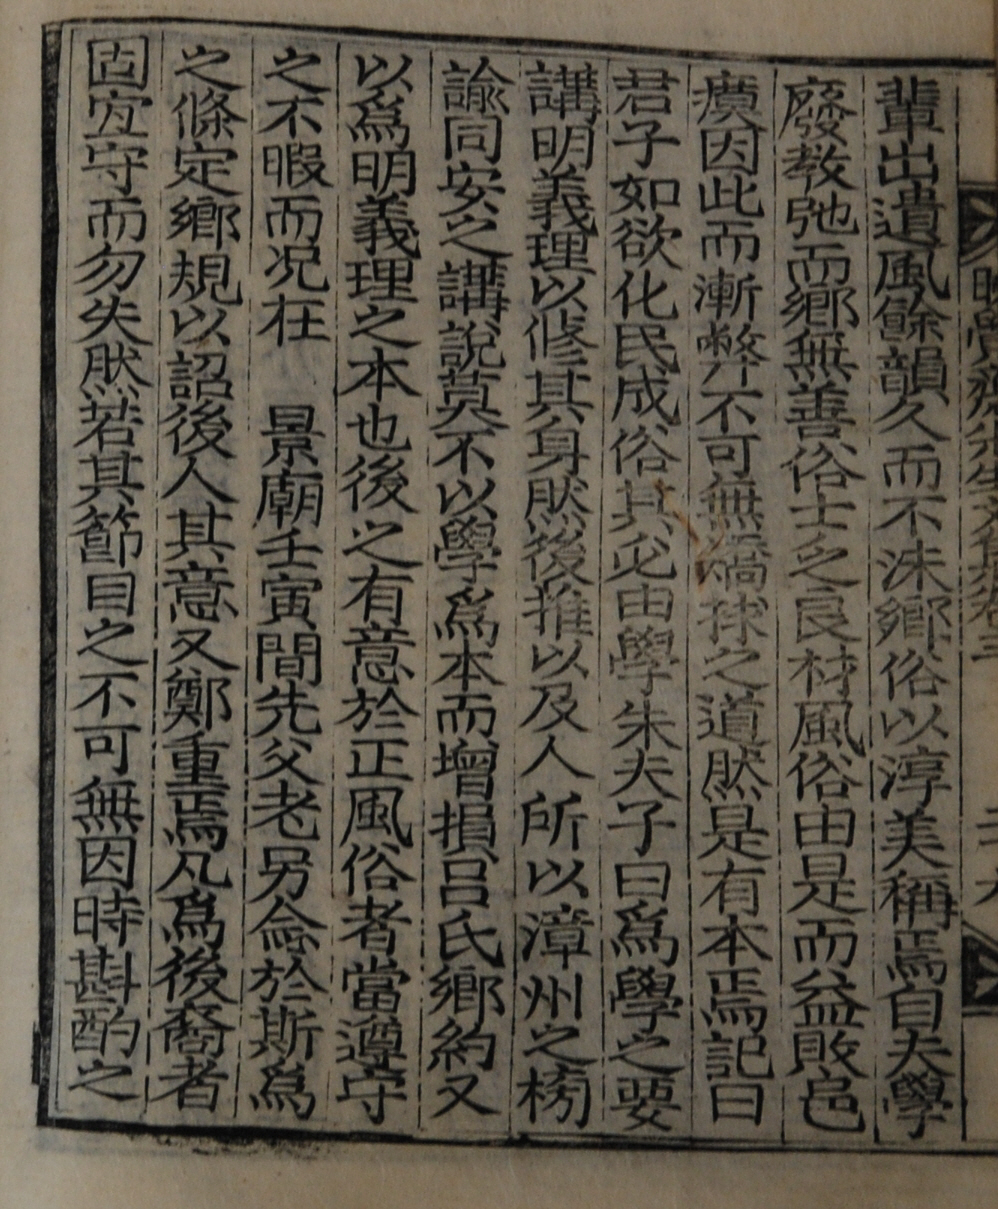 輩出遺風餘韻久而不沬鄉俗以淳美稱焉自夫學
廢教弛而鄉無善俗士乏良材風俗由是而益敗邑
瘼因此而漸弊不可無矯捄之道然是有本焉記曰
君子如欲化民成俗其必由學朱夫子曰爲學之要
講明義理以修其身然後推以及人所以漳州之榜
諭同安之講說莫不以學爲本而增損呂氏鄉約又
以爲明義理之本也後之有意於正風俗者當遵守
之不暇而况在 景廟壬寅間先父老另念於斯爲
之條定鄉規以詔後人其意又鄭重焉凡爲後裔者
固宜守而勿失然若其節目之不可無因時斟酌之